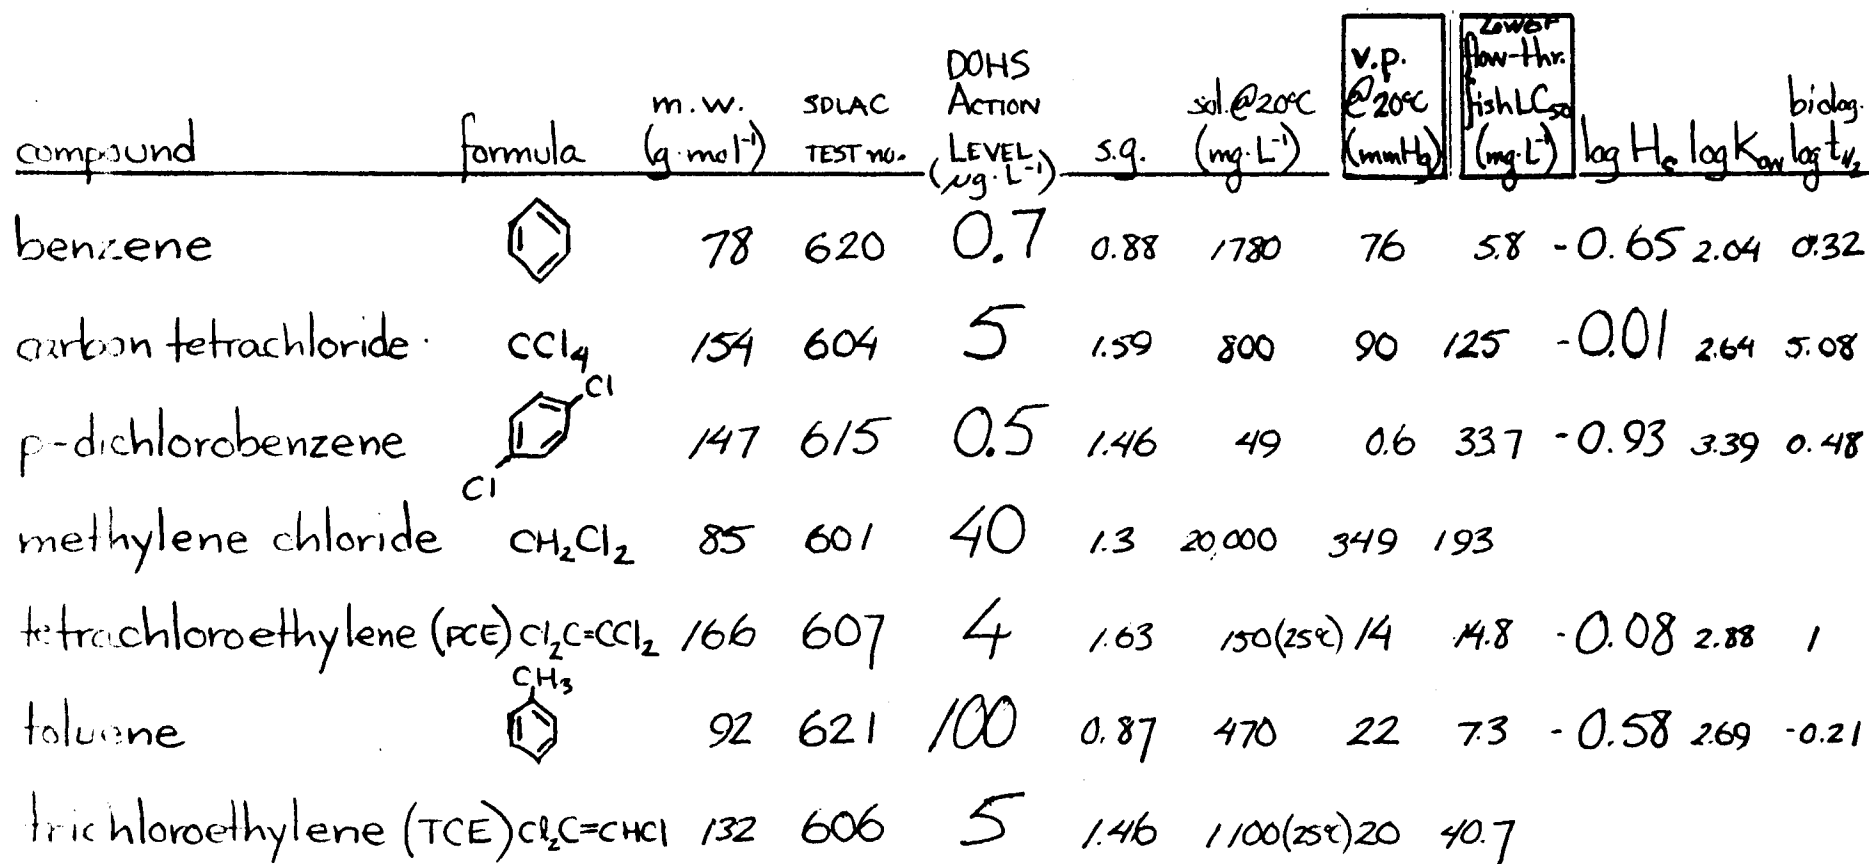 compound formula m.w. (g·mol⁻¹) SDLAC TEST no. DOHS ACTION LEVEL (µg·L⁻¹) s.g. sol.@20°C (mg·L⁻¹) v.p. @20°C (mmHg) Lower flow-thr. fish LC₅₀ (mg·L⁻¹) log H꜀ log Kow biolog. log t½
benzene 78 620 0.7 0.88 1780 76 5.8 -0.65 2.04 0.32
carbon tetrachloride CCl₄ 154 604 5 1.59 800 90 125 -0.01 2.64 5.08
p-dichlorobenzene Cl Cl 147 615 0.5 1.46 49 0.6 33.7 -0.93 3.39 0.48
methylene chloride CH₂Cl₂ 85 601 40 1.3 20,000 349 193
tetrachloroethylene (PCE) Cl₂C=CCl₂ 166 607 4 1.63 150(25°C) 14 14.8 -0.08 2.88 1
toluene CH₃ 92 621 100 0.87 470 22 7.3 -0.58 2.69 -0.21
trichloroethylene (TCE) Cl₂C=CHCl 132 606 5 1.46 1100(25°C) 20 40.7